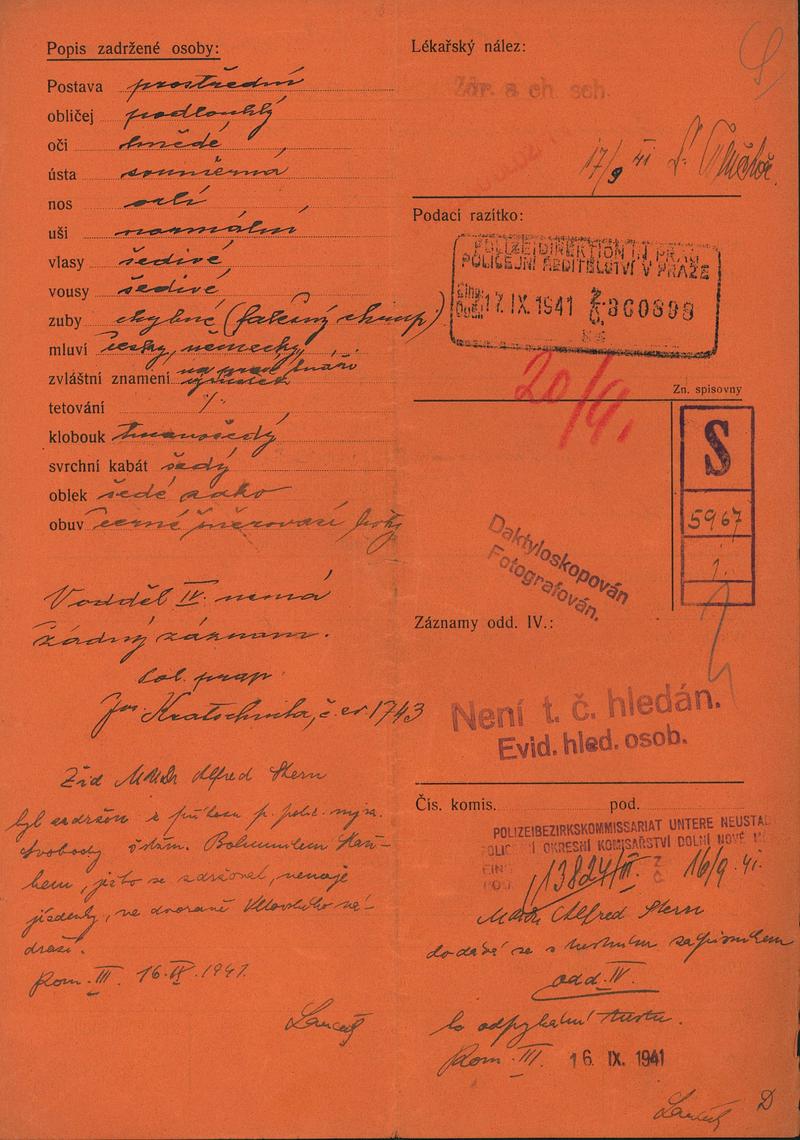 Popis zadržené osoby:
Postava prostřední
obličej podlouhlý
oči hnědé
ústa souměrná
nos malí
uši normální
vlasy šedivé
vousy šedivé
zuby chybné (falešný chrup)
mluví česky, německy,
zvláštní znamení na pravé tváři
tetování ./.
klobouk tmavošedý
svrchní kabát šedý
oblek šedé sako
obuv černé šněrovací boty
V odděl IV. nemá
žádný záznam.
pol. prap.
Jos. Kratochvila, č. ev. 1743
Žid MUDr Alfred Stern
byl zadržen z příkazu p. polic. insp.
Svobody strážm. Bohumilem
jehto se zdržoval, nemaje
jízdenky, ve dvoraně Wilsonského ná-
draží.
Kom. III. 16. IX. 1941.
Lékařský nález:
Zdr. a ch. sch.
17/9 41 Dr.
Podací razítko:
POLIZEIDIREKTION IN PRAG
POLICEJNÍ ŘEDITELSTVÍ V PRAZE
Eing.
Došlo 17. IX. 1941 Z. Č. 360898
20/9.
Zn. spisovny
S
5967
1.
Daktyloskopován
Fotografován.
Záznamy odd. IV.:
Není t. č. hledán.
Evid. hled. osob.
Čís. komis. pod.
POLIZEIBEZIRKSKOMMISSARIAT UNTERE NEUSTAD
POLICEJNÍ OKRESNÍ KOMISAŘSTVÍ DOLNÍ NOVÉ M
EING. 13824/III. Z. Č. 16/9. 41.
MUDr Alfred Stern
dodává se s trestním zápisníkem
odd. IV.
ku odpykání trestu.
Kom. III. 16. IX. 1941
D